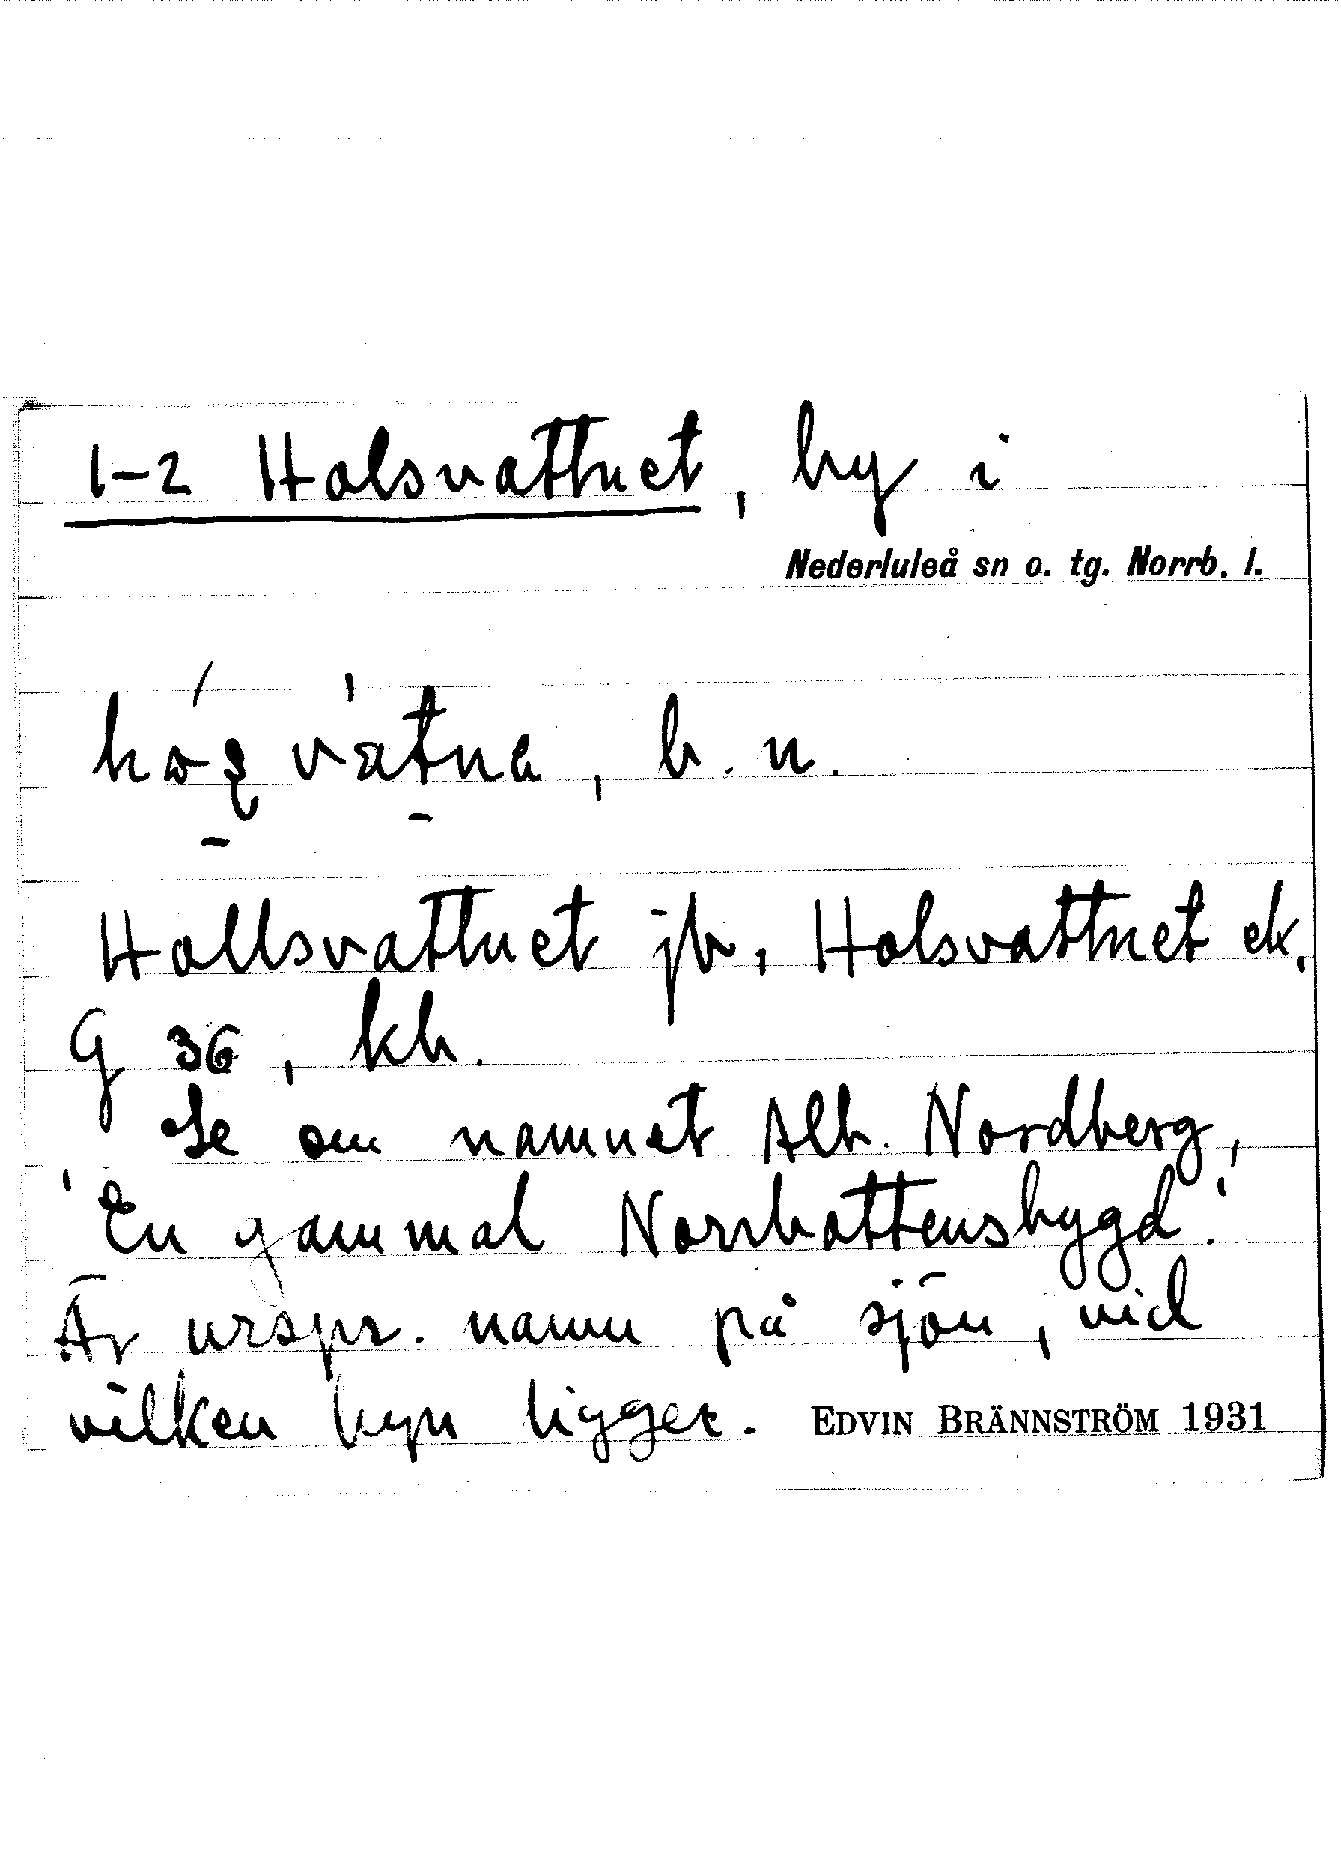 1-2 Halsvattnet, by i
Nederluleå sn o. tg. Norrb. l.
b. n.
Hallsvattnet jb, Halsvattnet ek.
G 36, kb.
Se om namnet Alb. Nordberg,
'En gammal Norrbottensbygd'.
Är urspr. namn på sjön, vid
vilken byn ligger. EDVIN BRÄNNSTRÖM 1931